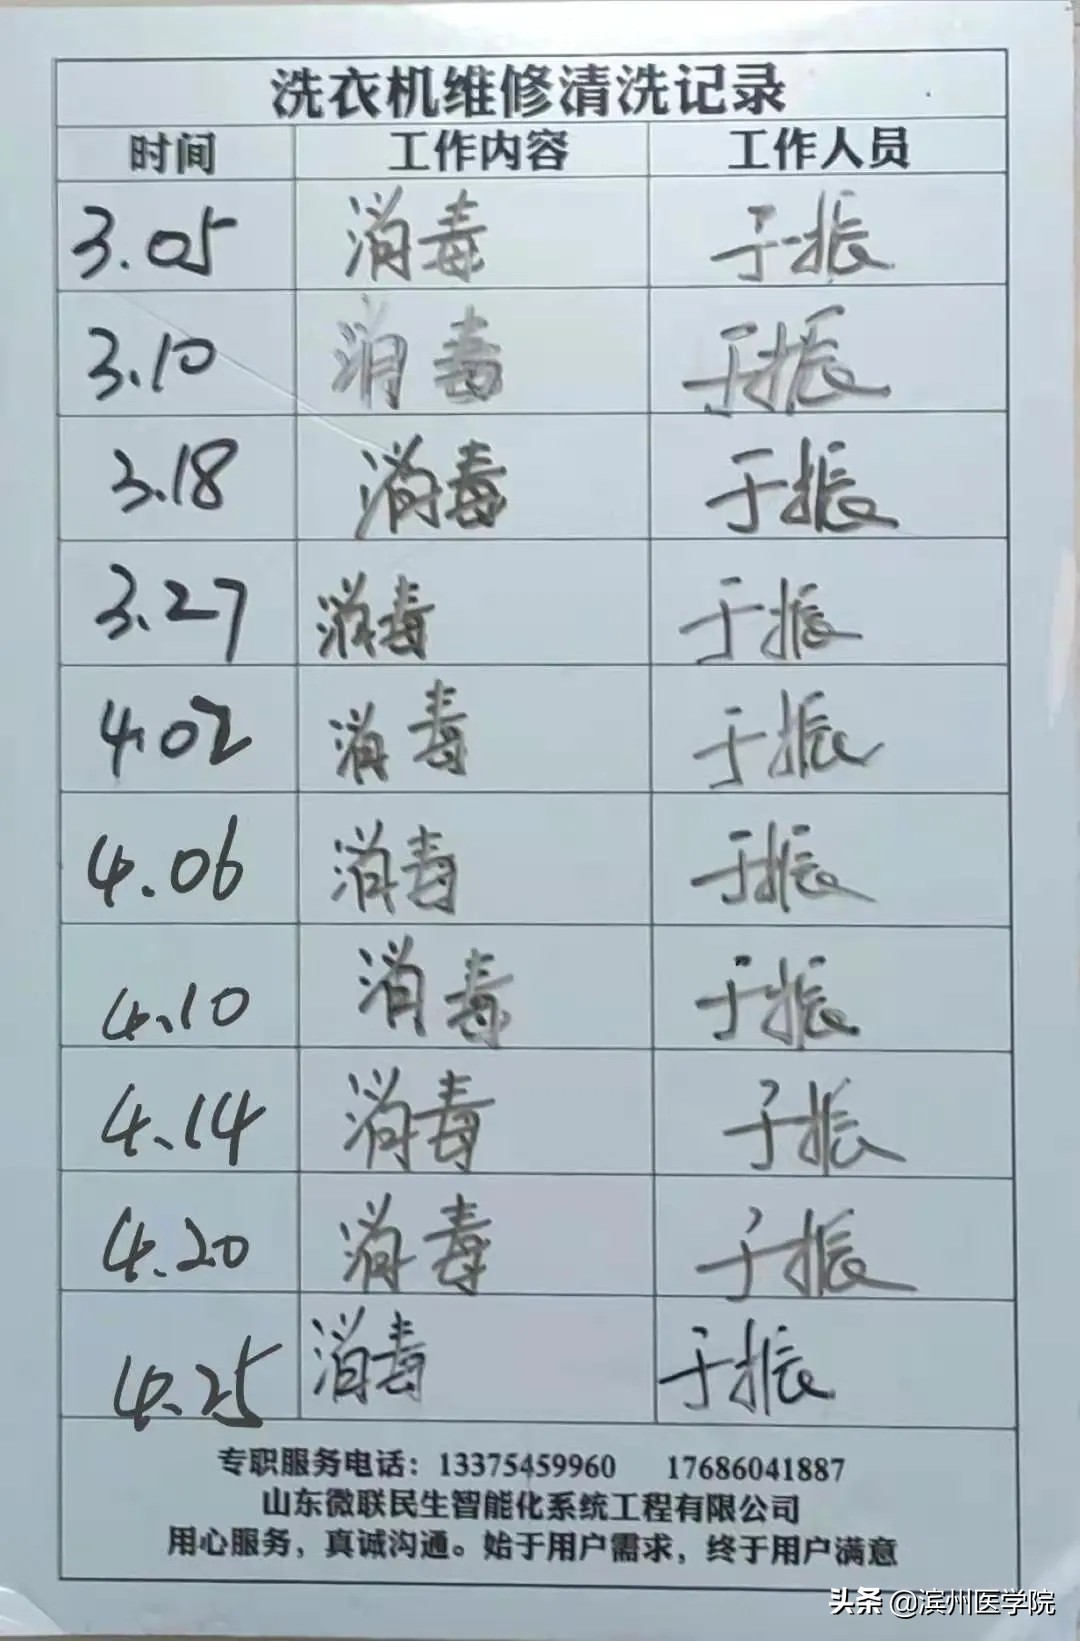 洗衣机维修清洗记录
时间 工作内容 工作人员
3.05 消毒 于振
3.10 消毒 于振
3.18 消毒 于振
3.27 消毒 于振
4.02 消毒 于振
4.06 消毒 于振
4.10 消毒 于振
4.14 消毒 于振
4.20 消毒 于振
4.25 消毒 于振
专职服务电话：13375459960 17686041887
山东微联民生智能化系统工程有限公司
用心服务，真诚沟通。始于用户需求，终于用户满意
头条 @滨州医学院